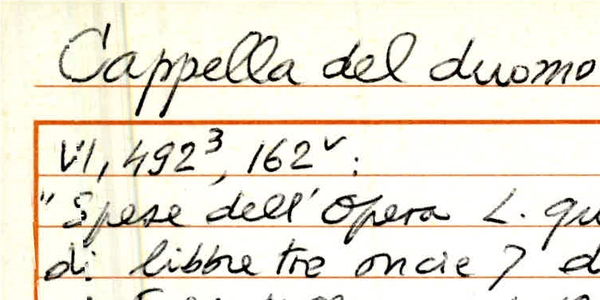 Cappella del duomo
VI, 492³, 162ᵛ:
"Spese dell'Opera L. qu
di libbre tre oncie 7 d